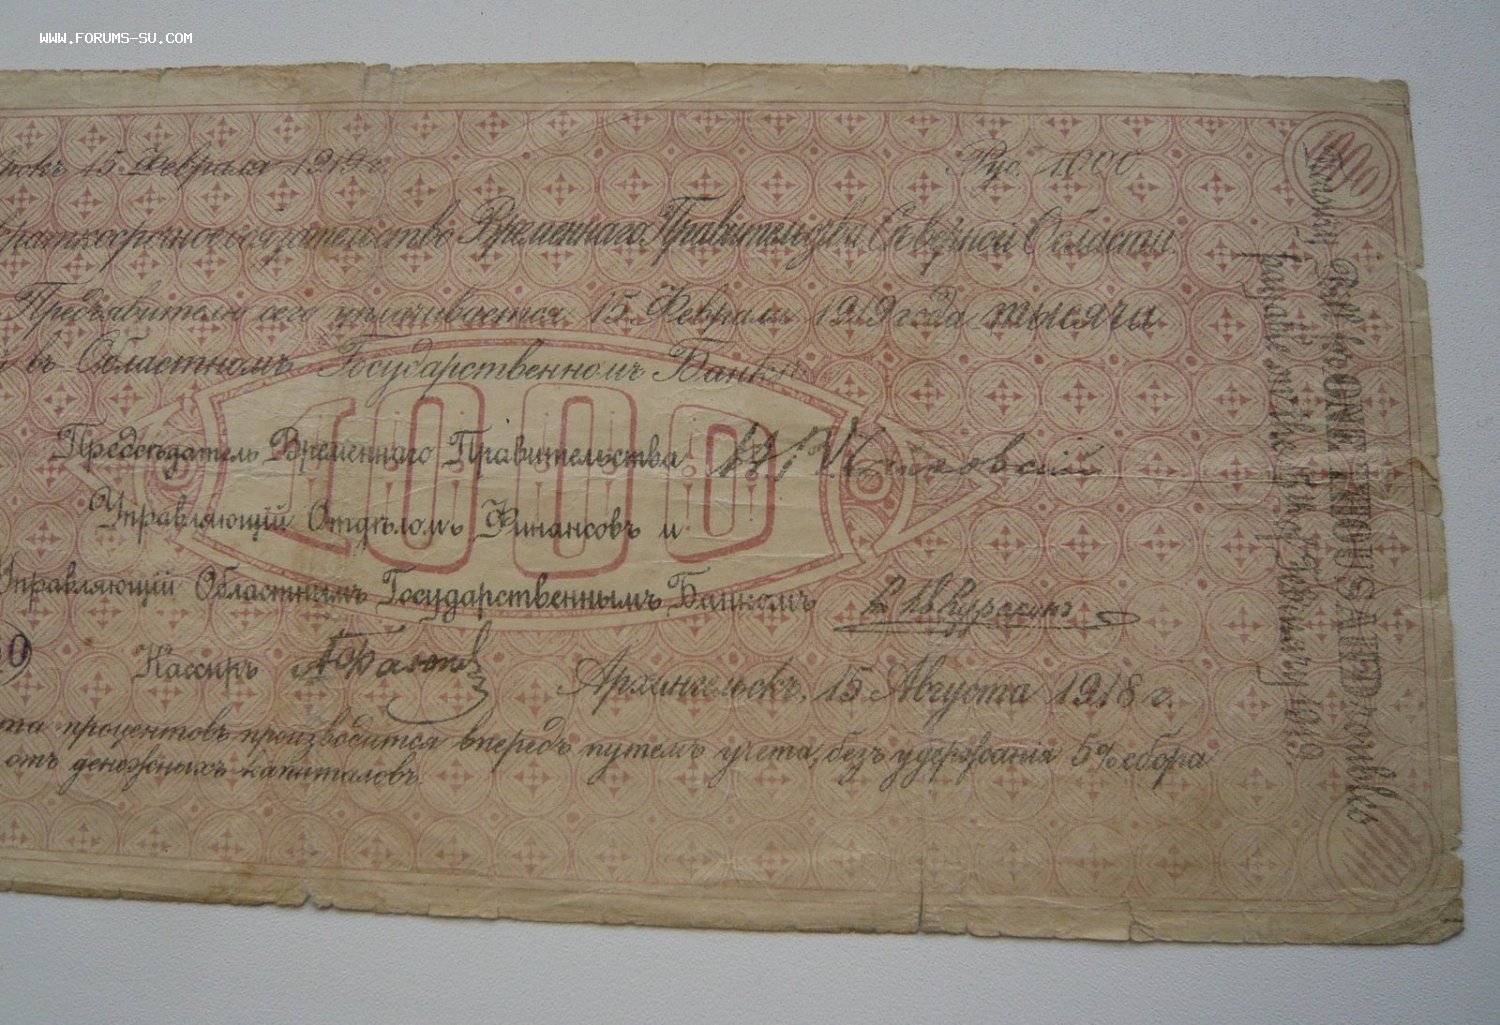 WWW.FORUMS-SU.COM
15 Февраля 1919 г.
Руб. 1000
Краткосрочное обязательство Временнаго Правительства Сѣверной Области.
Предъявителю сего уплачивается 15 Февраля 1919 года тысяча
въ Областномъ Государственномъ Банкѣ
1000
Предсѣдатель Временнаго Правительства
Управляющій Отдѣломъ Финансовъ и
Управляющій Областнымъ Государственнымъ Банкомъ
Кассиръ
Архангельскъ, 15 Августа 1918 г.
процентовъ производится впередъ путемъ учета, безъ удержанія 5% сбора
отъ денежныхъ капиталовъ.
1000
Treasury for ONE THOUSAND roubles
payable on the 15 of February 1919